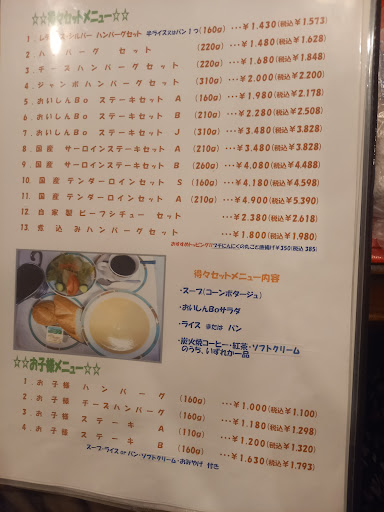 ☆☆得々セットメニュー☆☆
1．レディース・シルバー ハンバーグセット 半ライス又はパン1つ(160g) ･･･￥1.430(税込￥1.573)
2．ハンバーグ セット (220g) ･･･￥1.480(税込￥1.628)
3．チーズハンバーグセット (220g) ･･･￥1.680(税込￥1.848)
4．ジャンボハンバーグセット (310g) ･･･￥2.000(税込￥2.200)
5．おいしんBo ステーキセット A (160g) ･･･￥1.980(税込￥2.178)
6．おいしんBo ステーキセット B (210g) ･･･￥2.280(税込￥2.508)
7．おいしんBo ステーキセット J (310g) ･･･￥3.480(税込￥3.828)
8．国産 サーロインステーキセット A (210g) ･･･￥3.480(税込￥3.828)
9．国産 サーロインステーキセット B (260g) ･･･￥4.080(税込￥4.488)
10．国産 テンダーロインセット S (160g) ･･･￥4.180(税込￥4.598)
11．国産 テンダーロインセット A (210g) ･･･￥4.900(税込￥5.390)
12．自家製ビーフシチュー セット ･･･￥2.380(税込￥2.618)
13．煮込みハンバーグセット ･･･￥1.800(税込￥1.980)
おすすめトッピング☆プチにんにくの丸ごと唐揚げ￥350(税込385)
得々セットメニュー内容
・スープ(コーンポタージュ)
・おいしんBoサラダ
・ライス または パン
・炭火焼コーヒー・紅茶・ソフトクリーム
のうち、いずれか一品
☆☆お子様メニュー☆☆
1．お子様 ハンバーグ (160g) ･･･￥1.000(税込￥1.100)
2．お子様 チーズハンバーグ (160g) ･･･￥1.180(税込￥1.298)
3．お子様 ステーキ A (110g) ･･･￥1.200(税込￥1.320)
4．お子様 ステーキ B (160g) ･･･￥1.630(税込￥1.793)
スープ・ライス or パン・ソフトクリーム・おみやげ 付き